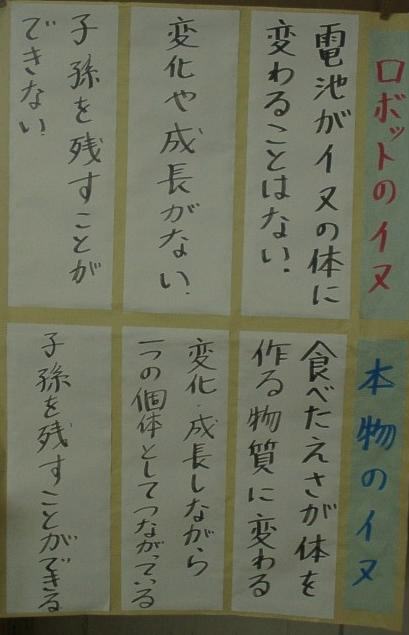 ロボットのイヌ
電池がイヌの体に
変わることはない.
変化や成長がない.
子孫を残すことが
できない.
本物のイヌ
食べたえさが体を
作る物質に変わる
変化・成長しながら
一つの個体としてつながっている
子孫を残すことができる